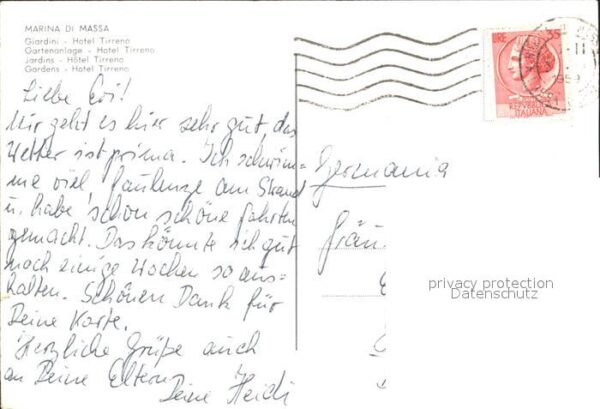 MARINA DI MASSA
Giardini - Hotel Tirreno
Gartenanlage - Hotel Tirreno
Jardins - Hôtel Tirreno
Gardens - Hotel Tirreno
LIRE 35
REPUBBLICA
ITALIANA
Liebe Evi!
Mir geht es hier sehr gut, das
Wetter ist prima. Ich schwim-
me viel, faulenze am Strand
u. habe schon schöne Fahrten
gemacht. Das könnte ich gut
noch einige Wochen so aus-
halten. Schönen Dank für
Deine Karte.
Herzliche Grüße auch
an Deine Eltern
Deine Heidi
Germania
Fräu
privacy protection
Datenschutz